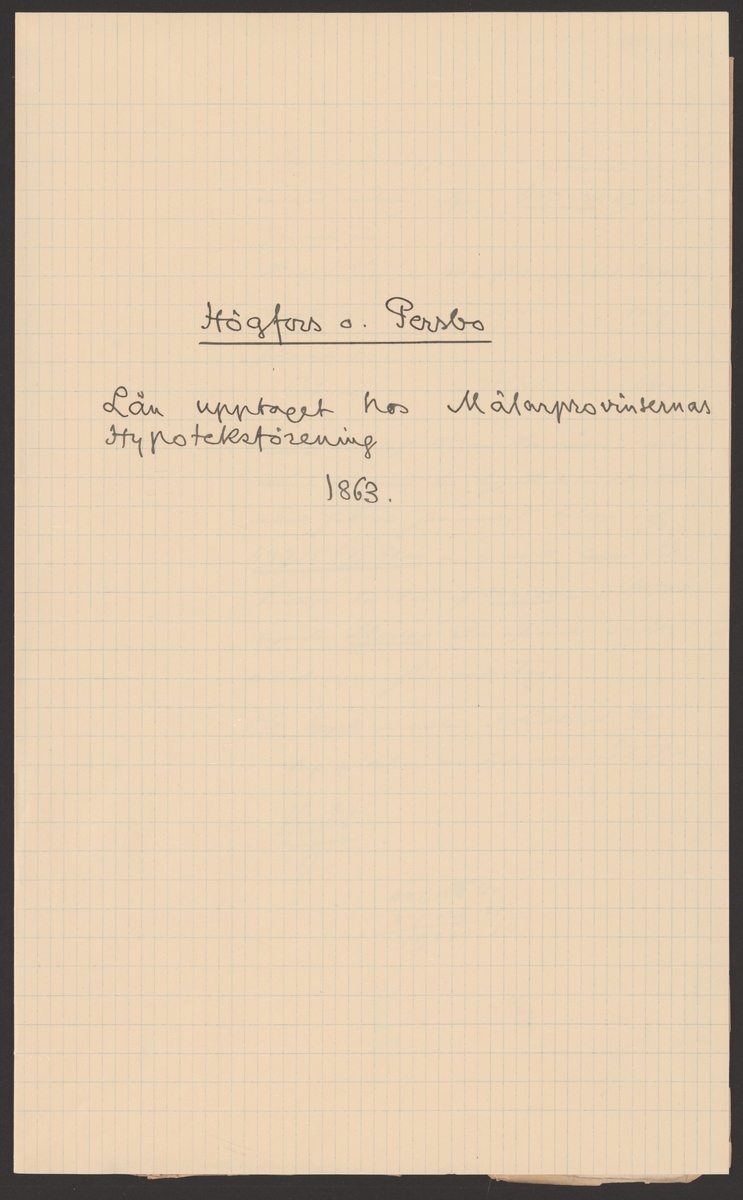 Högfors o. Persbo
Lån upptaget hos Mälarprovinsernas
Hypoteksförening
1863.